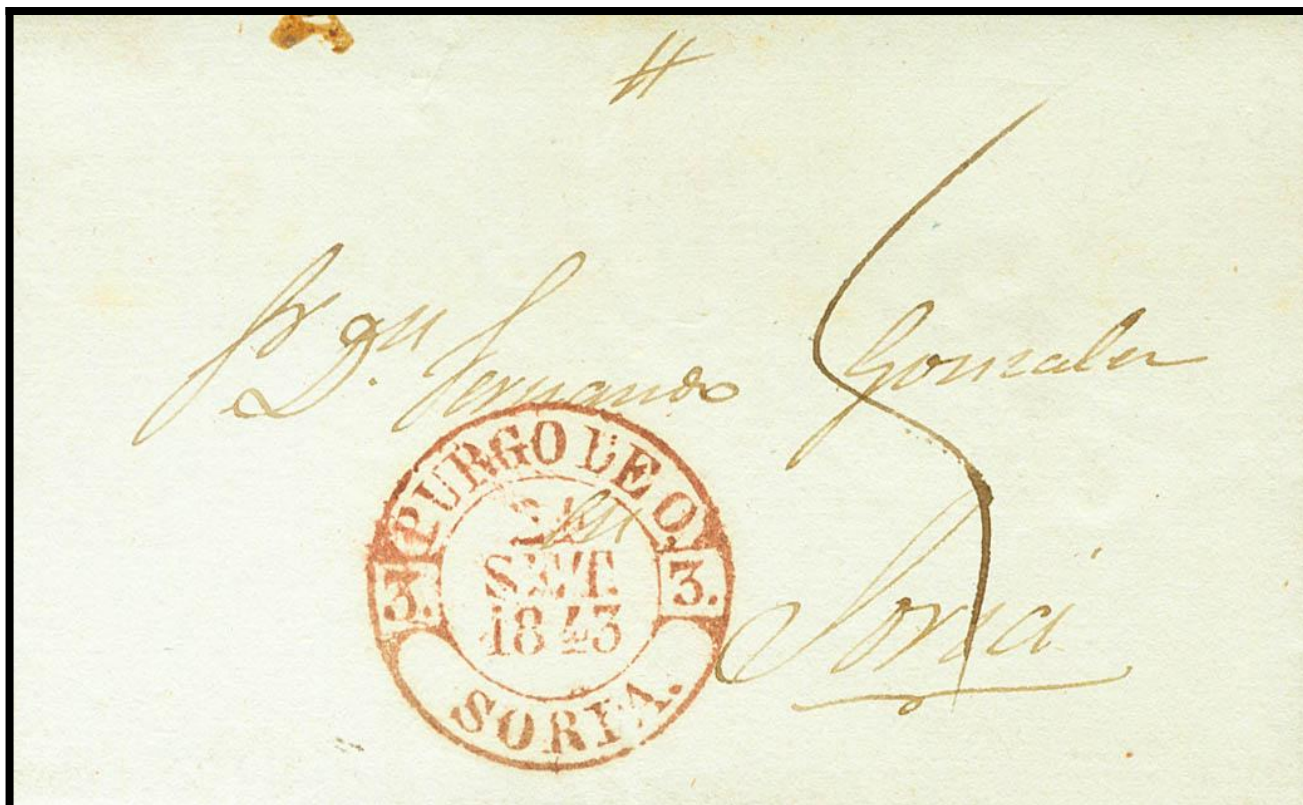 Sr. Dn. Fernando Gonzalez
en
Soria
BURGO DE O.
3. 24 3.
SET.
1843
SORIA.